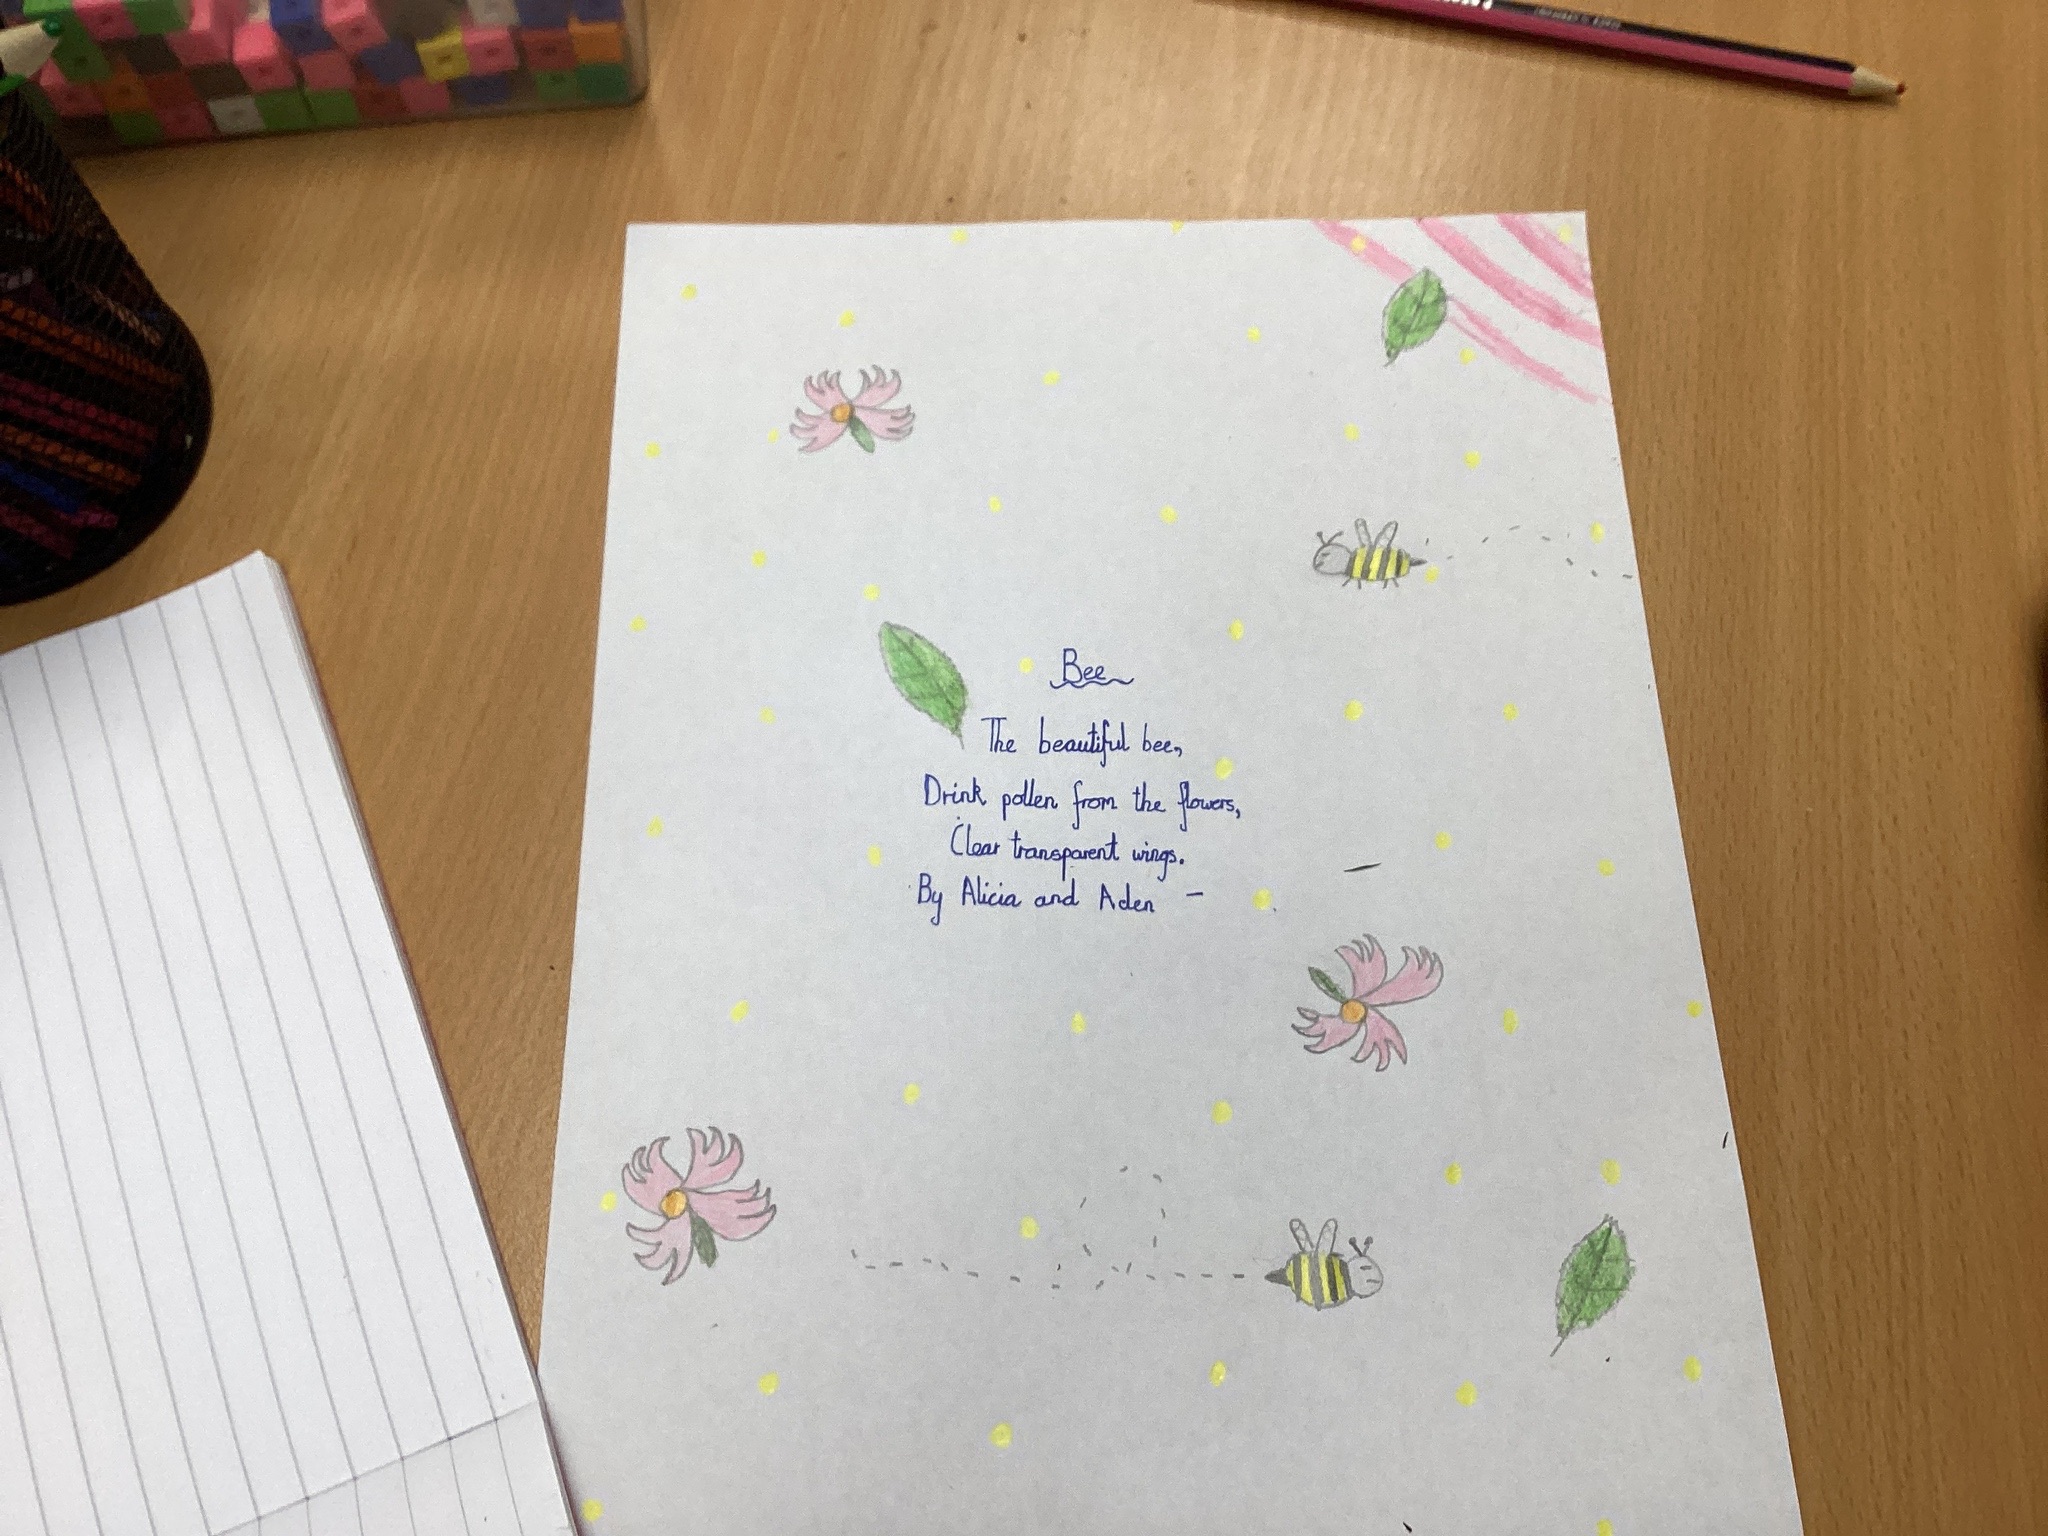 Bee
The beautiful bee,
Drink pollen from the flowers,
Clear transparent wings.
By Alicia and Aden -